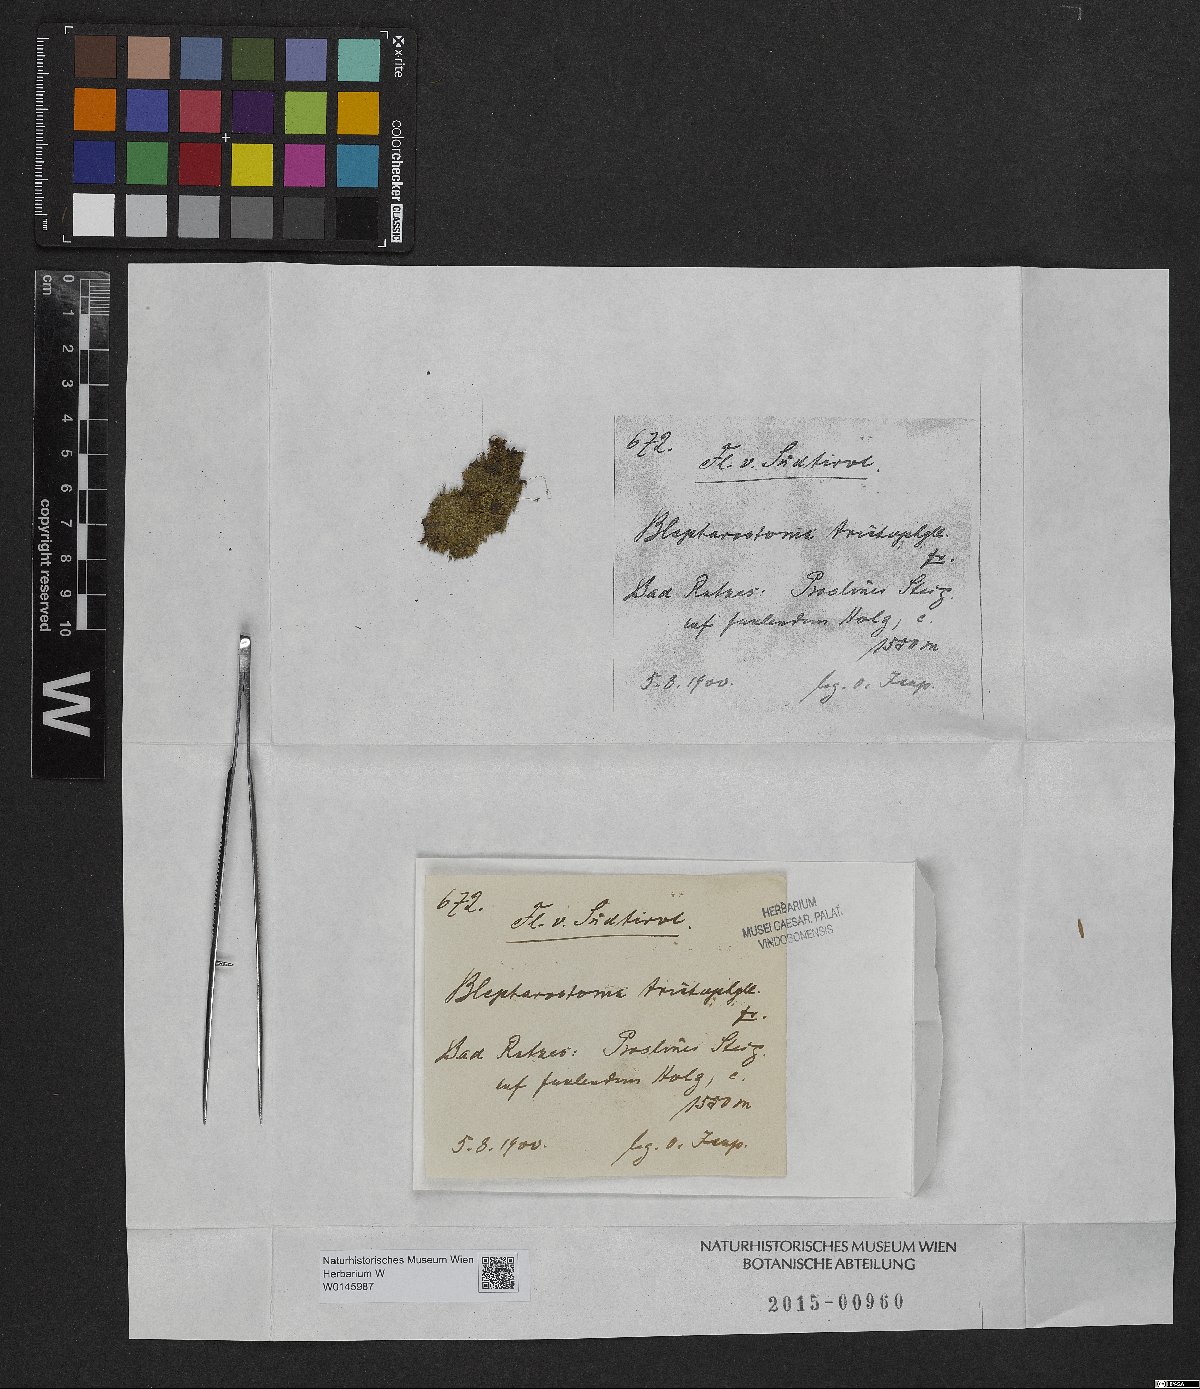 x-rite
colorchecker CLASSIC
mm
cm
0 1 2 3 4 5 6 7 8 9 10
copyright reserved
W
672.
Fl. v. Südtirol.
Blepharostoma trichophyll.
fr.
Bad Ratzes: Proslines Steig.
auf faulendem Holz, c.
1580 m
5.8.1900. leg.
672.
Fl. v. Südtirol.
HERBARIUM
MUSEI CAESAR. PALAT.
VINDOBONENSIS
Blepharostoma trichophyll.
fr.
Bad Ratzes: Proslines Steig.
auf faulendem Holz, c.
1580 m
5.8.1900. leg.
Naturhistorisches Museum Wien
Herbarium W
W0145987
NATURHISTORISCHES MUSEUM WIEN
BOTANISCHE ABTEILUNG
2015-00960